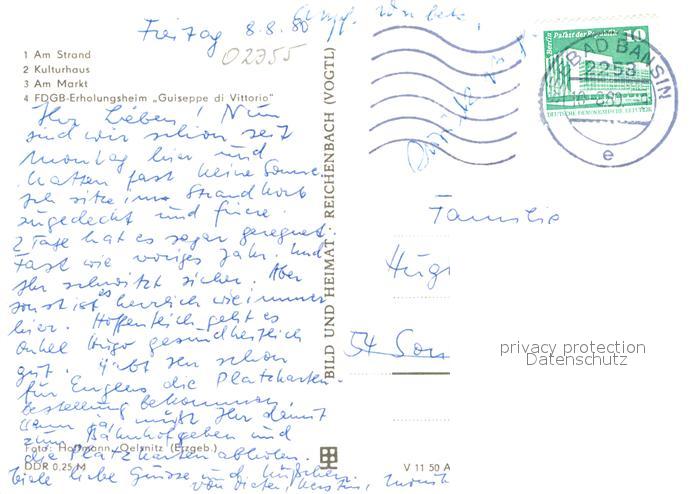 Freitag 8.8.80
02355
1 Am Strand
2 Kulturhaus
3 Am Markt
4 FDGB-Erholungsheim „Guiseppe di Vittorio"
Ihr Lieben! Nun
sind wir schon seit
Montag hier und
hatten fast keine Sonne
Ich sitze im Strandkorb
zugedeckt und friere.
2 Tage hat es sogar geregnet.
Fast wie voriges Jahr. Und
Ihr schwitzt sicher. Aber
sonst ist es herrlich wie immer
hier. Hoffentlich geht es
Onkel Hugo gesundheitlich
gut. Habt Ihr schon
für Englers die Platzkarten-
bestellung bekommen,
wenn ja, müßt Ihr damit
zum Bahnhof gehen und
die Platzkarten abholen.
Foto: Hoffmann, Oelsnitz (Erzgeb.)
DDR 0.25 M
Viele liebe Grüsse und Küßchen
von Dieter, Kerstin,
BILD UND HEIMAT · REICHENBACH (VOGTL)
V 11 50 A
Berlin Palast der Republik 10
DEUTSCHE DEMOKRATISCHE REPUBLIK
BAD BANSIN
2253
e
Familie
Hugo
54 Son
privacy protection
Datenschutz